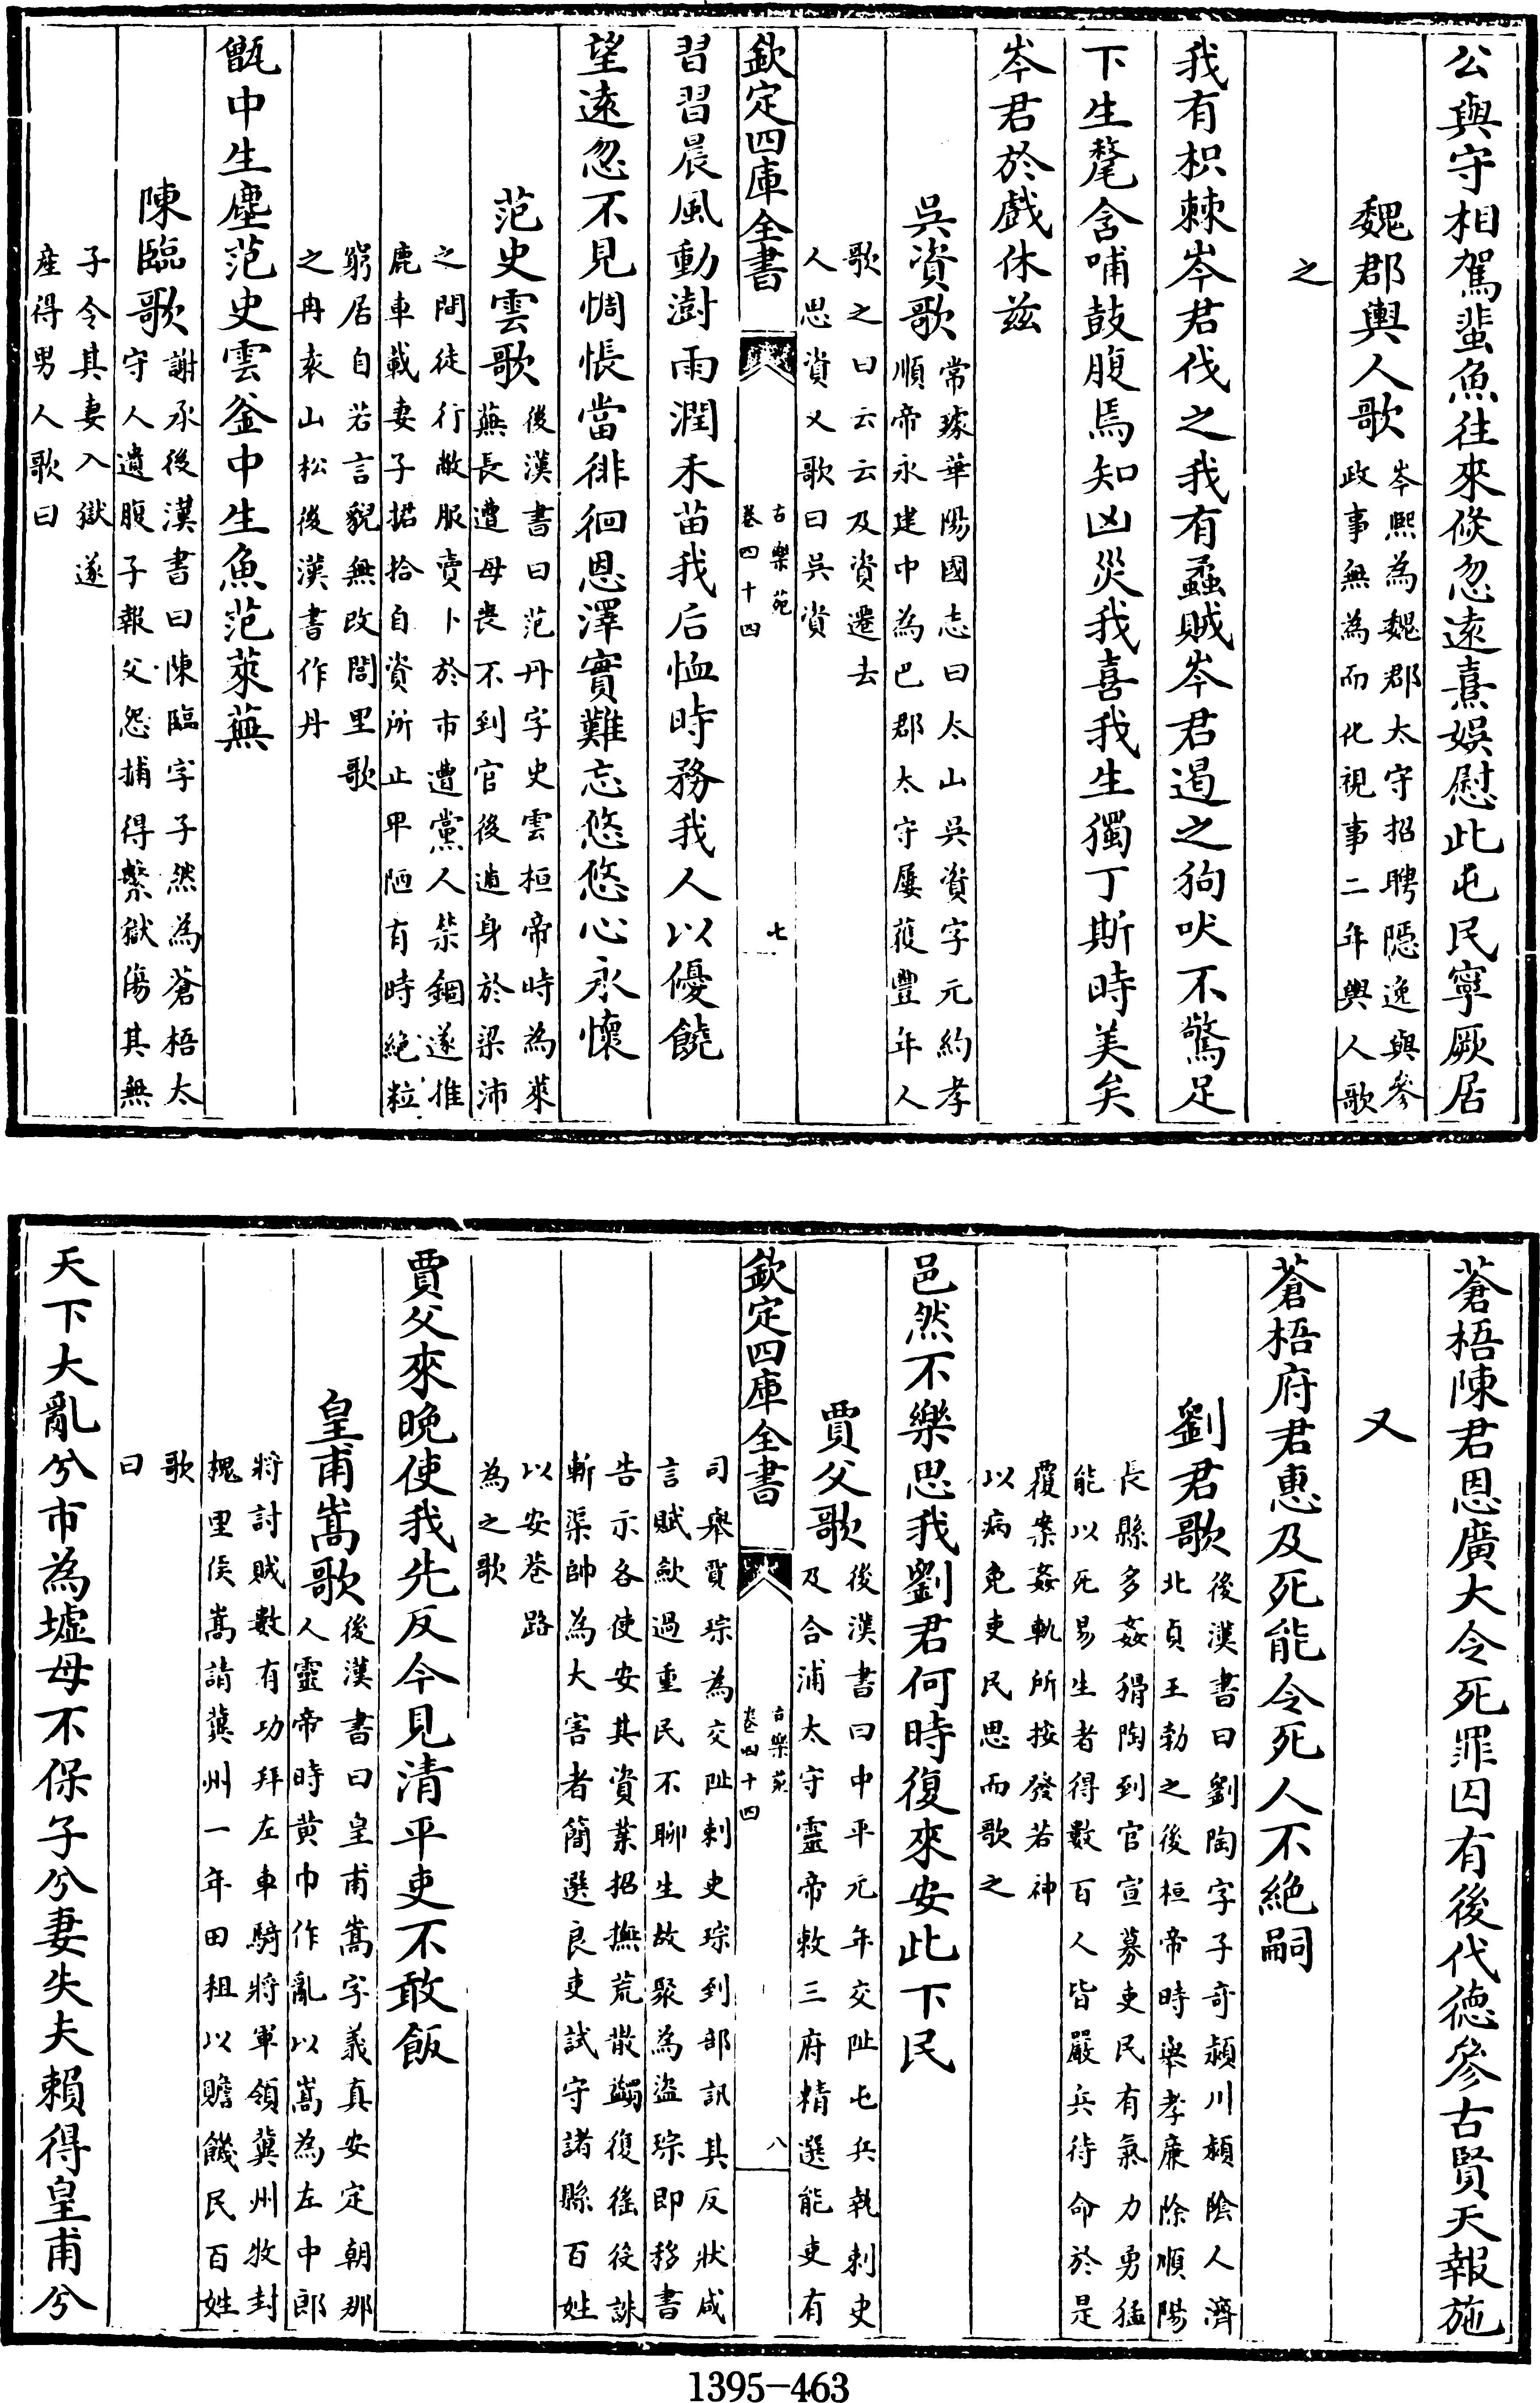 公與守相駕蜚魚往來倏忽遠熹娛慰此屯民寧厥居
魏郡輿人歌
岑熙為魏郡太守招聘隱逸與參
政事無為而化視事二年輿人歌
之
我有枳棘岑君伐之我有蟊賊岑君遏之狗吠不驚足
下生氂含哺鼓腹焉知凶災我喜我生獨丁斯時美矣
岑君於戲休兹
吳資歌
常璩華陽國志曰太山吳資字元約孝
順帝永建中為巴郡太守屢獲豐年人
歌之曰云云及資遷去
人思資又歌曰吳資
欽定四庫全書
古樂苑
卷四十四
七
習習晨風動澍雨潤禾苗我后恤時務我人以優饒
望遠忽不見惆悵當徘徊恩澤實難忘悠悠心永懷
范史雲歌
後漢書曰范丹字史雲桓帝時為萊
蕪長遭母喪不到官後遁身於梁沛
之間徒行敝服賣卜於市遭黨人禁錮遂推
鹿車載妻子捃拾自資所止卑陋有時絶粒
窮居自若言貌無改閭里歌
之冉袁山松後漢書作丹
甑中生塵范史雲釜中生魚范萊蕪
陳臨歌
謝承後漢書曰陳臨字子然為蒼梧太
守人遺腹子報父怨捕得繫獄傷其無
子令其妻入獄遂
産得男人歌曰
蒼梧陳君恩廣大令死罪囚有後代德參古賢天報施
又
蒼梧府君惠及死能令死人不絶嗣
劉君歌
後漢書曰劉陶字子奇潁川潁陰人濟
北貞王勃之後桓帝時舉孝廉除順陽
長縣多姦猾陶到官宣募吏民有氣力勇猛
能以死易生者得數百人皆嚴兵待命於是
覆案姦軌所按發若神
以病免吏民思而歌之
邑然不樂思我劉君何時復來安此下民
賈父歌
後漢書曰中平元年交阯屯兵執刺史
及合浦太守靈帝敕三府精選能吏有
欽定四庫全書
古樂苑
卷四十四
八
司舉賈琮為交阯刺史琮到部訊其反狀咸
言賦歛過重民不聊生故聚為盜琮即移書
告示各使安其資業招撫荒散蠲復徭役誅
斬渠帥為大害者簡選良吏試守諸縣百姓
以安巷路
為之歌
賈父來晚使我先反今見清平吏不敢飯
皇甫嵩歌
後漢書曰皇甫嵩字義真安定朝那
人靈帝時黄巾作亂以嵩為左中郎
將討賊數有功拜左車騎將軍領冀州牧封
槐里侯嵩請冀州一年田租以贍饑民百姓
歌
曰
天下大亂兮市為墟母不保子兮妻失夫賴得皇甫兮
1395-463